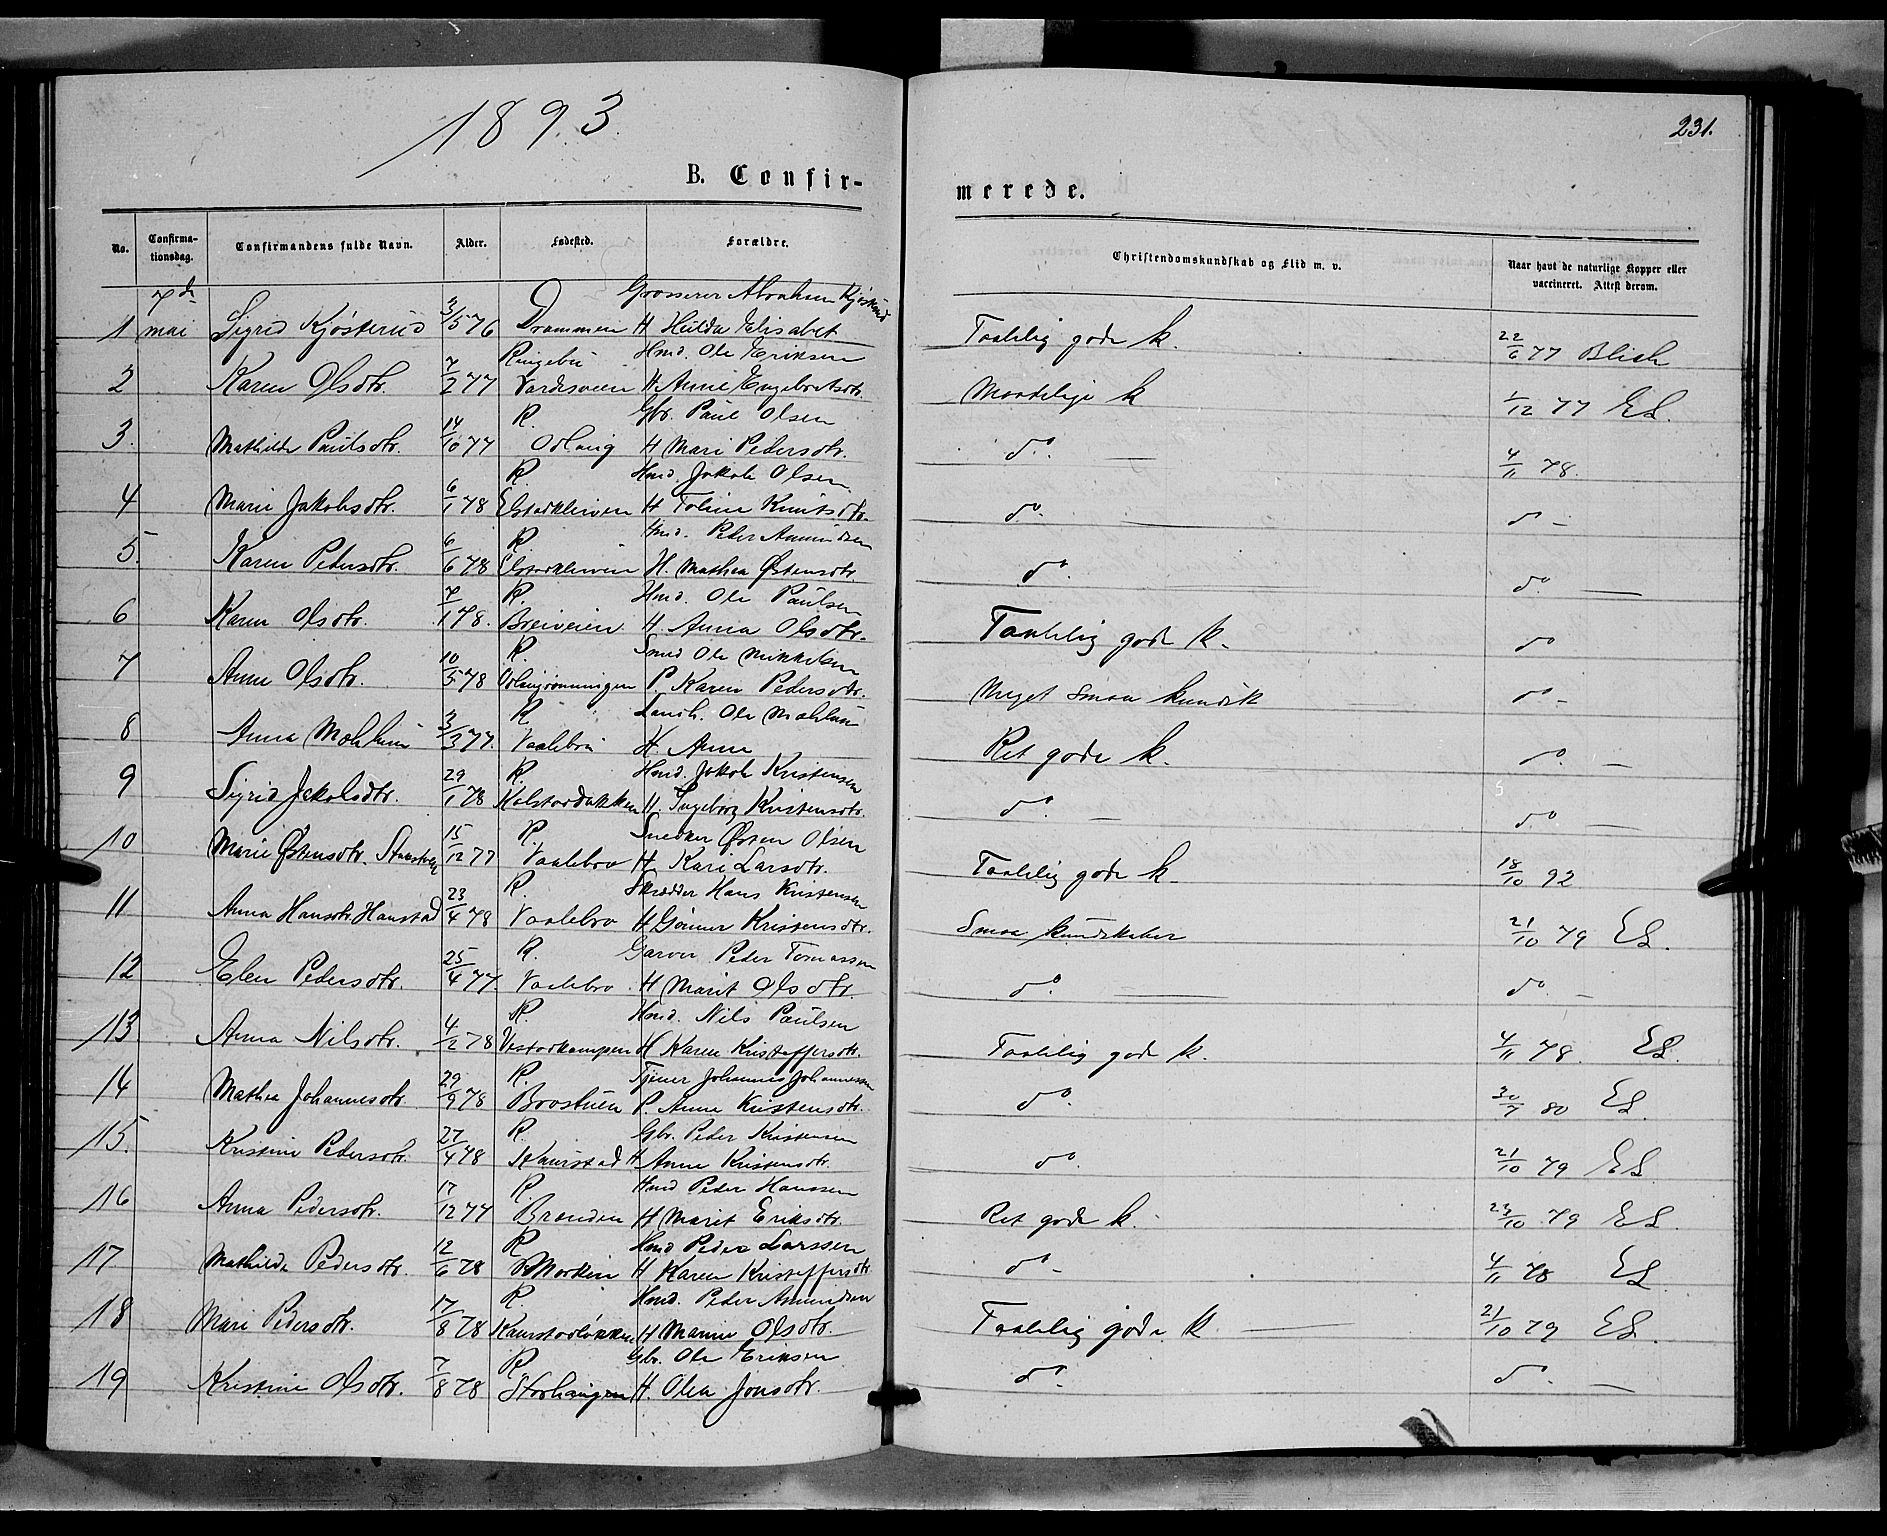 1893.
231.
B. Confir-
merede.
No.
Confirma-
tionsdag.
Confirmandens fulde Navn.
Alder.
Fødested.
Forældre.
Christendomskundskab og Flid m. v.
Naar havt de naturlige Kopper eller
vaccineret. Attest derom.
7de Grosserer Abraham Kjøsterud
1 mai Sigrid Kjøsterud 3/5 76 Drammen H Hulda Elisabet Taalelig gode k. 22/6 77 Blich
Ringebu Hmd. Ole Eriksen
2 Karen Olsdtr. 7/2 77 H Anne Engebretsdtr. Maadelige k 1/12 77 ES.
R. Gbr. Paul Olsen
3. Mathilde Paulsdtr. 14/10 77 Odlaug H Mari Pedersdtr. do. — 4/11 78.
R. Hmd. Jakob Olsen
4 Marie Jakobsdtr. 6/1 78 Elstadkleiven H Toline Knutsdtr. do. — do -
R Hmd. Peder Amundsen
5. Karen Pedersdtr. 6/6 78 Elstadkleiven H. Mathea Østensdtr. do. do. —
R. Hmd. Ole Paulsen
6 Karen Olsdtr. 7/1 78. Breiveien H. Anna Olsdtr. Taalelig gode k. do
R. Smed Ole Mikkelsen
7 Anne Olsdtr. 10/5 78 P. Karen Pedersdtr. Meget smaa kundsk do -
R. Landh. Ole Mæhlum
8 Anna Mæhlum 3/3 77. Vaalebru H. Anne Ret gode k. do. —
R. Hmd. Jakob Kristensen
9 Sigrid Jakobsdtr. 29/1 78 Kolstadbakken H. Ingeborg Kristensdtr. do. — do. —
R. Snedker Østen Olsen
10 Marie Østensdtr. 15/12 77 Vaalebro H. Kari Larsdtr. Taalelig gode k. 18/10 92
R. Skrædder Hans Kristensen
11 Anna Hansdtr Hanstad 23/4 78 Vaalebro H Gunnor Kristensdtr. Smaa kundskaber 21/10 79 ES.
R. Garver Peder Tomassen
12 Elen Pedersdtr. 25/4 77. Vaalebro H Marit Olsdtr. do. — do. -
R. Hmd. Nils Paulsen
13 Anna Nilsdtr. 4/2 78 Vestadkampen H Karen Kristoffersdtr. Taalelig gode k. 4/11 78. ES.
R. Tjener Johannes Johannessen
14 Mathea Johannesdtr. 29/9 78 Brostuen P. Anne Kristensdtr. do. 30/7 80 ES.
R. Gbr. Peder Kristensen
15. Kristine Pedersdtr. 27/4 78 Kaurstad H Anne Kristensdtr. do. 21/10 79 ES.
R. Hmd Peder Hanssen
16 Anna Pedersdtr. 17/12 77 Brænden H Marit Eriksdtr. Ret gode k. 23/10 79 ES.
R Hmd Peder Larssen
17 Mathilde Pedersdtr. 12/6 78 H Karen Kristoffersdtr. do - 4/11 78 ES
R. Hmd. Peder Amundsen
18 Mari Pedersdtr. 17/8 78 Kaurstadløkken H Marie Olsdtr. Taalelig gode k — 21/10 79 ES.
R Gbr. Ole Eriksen
19 Kristine Olsdtr. 7/8 78 Storhaugen H. Olea Jonsdtr. do. do. —